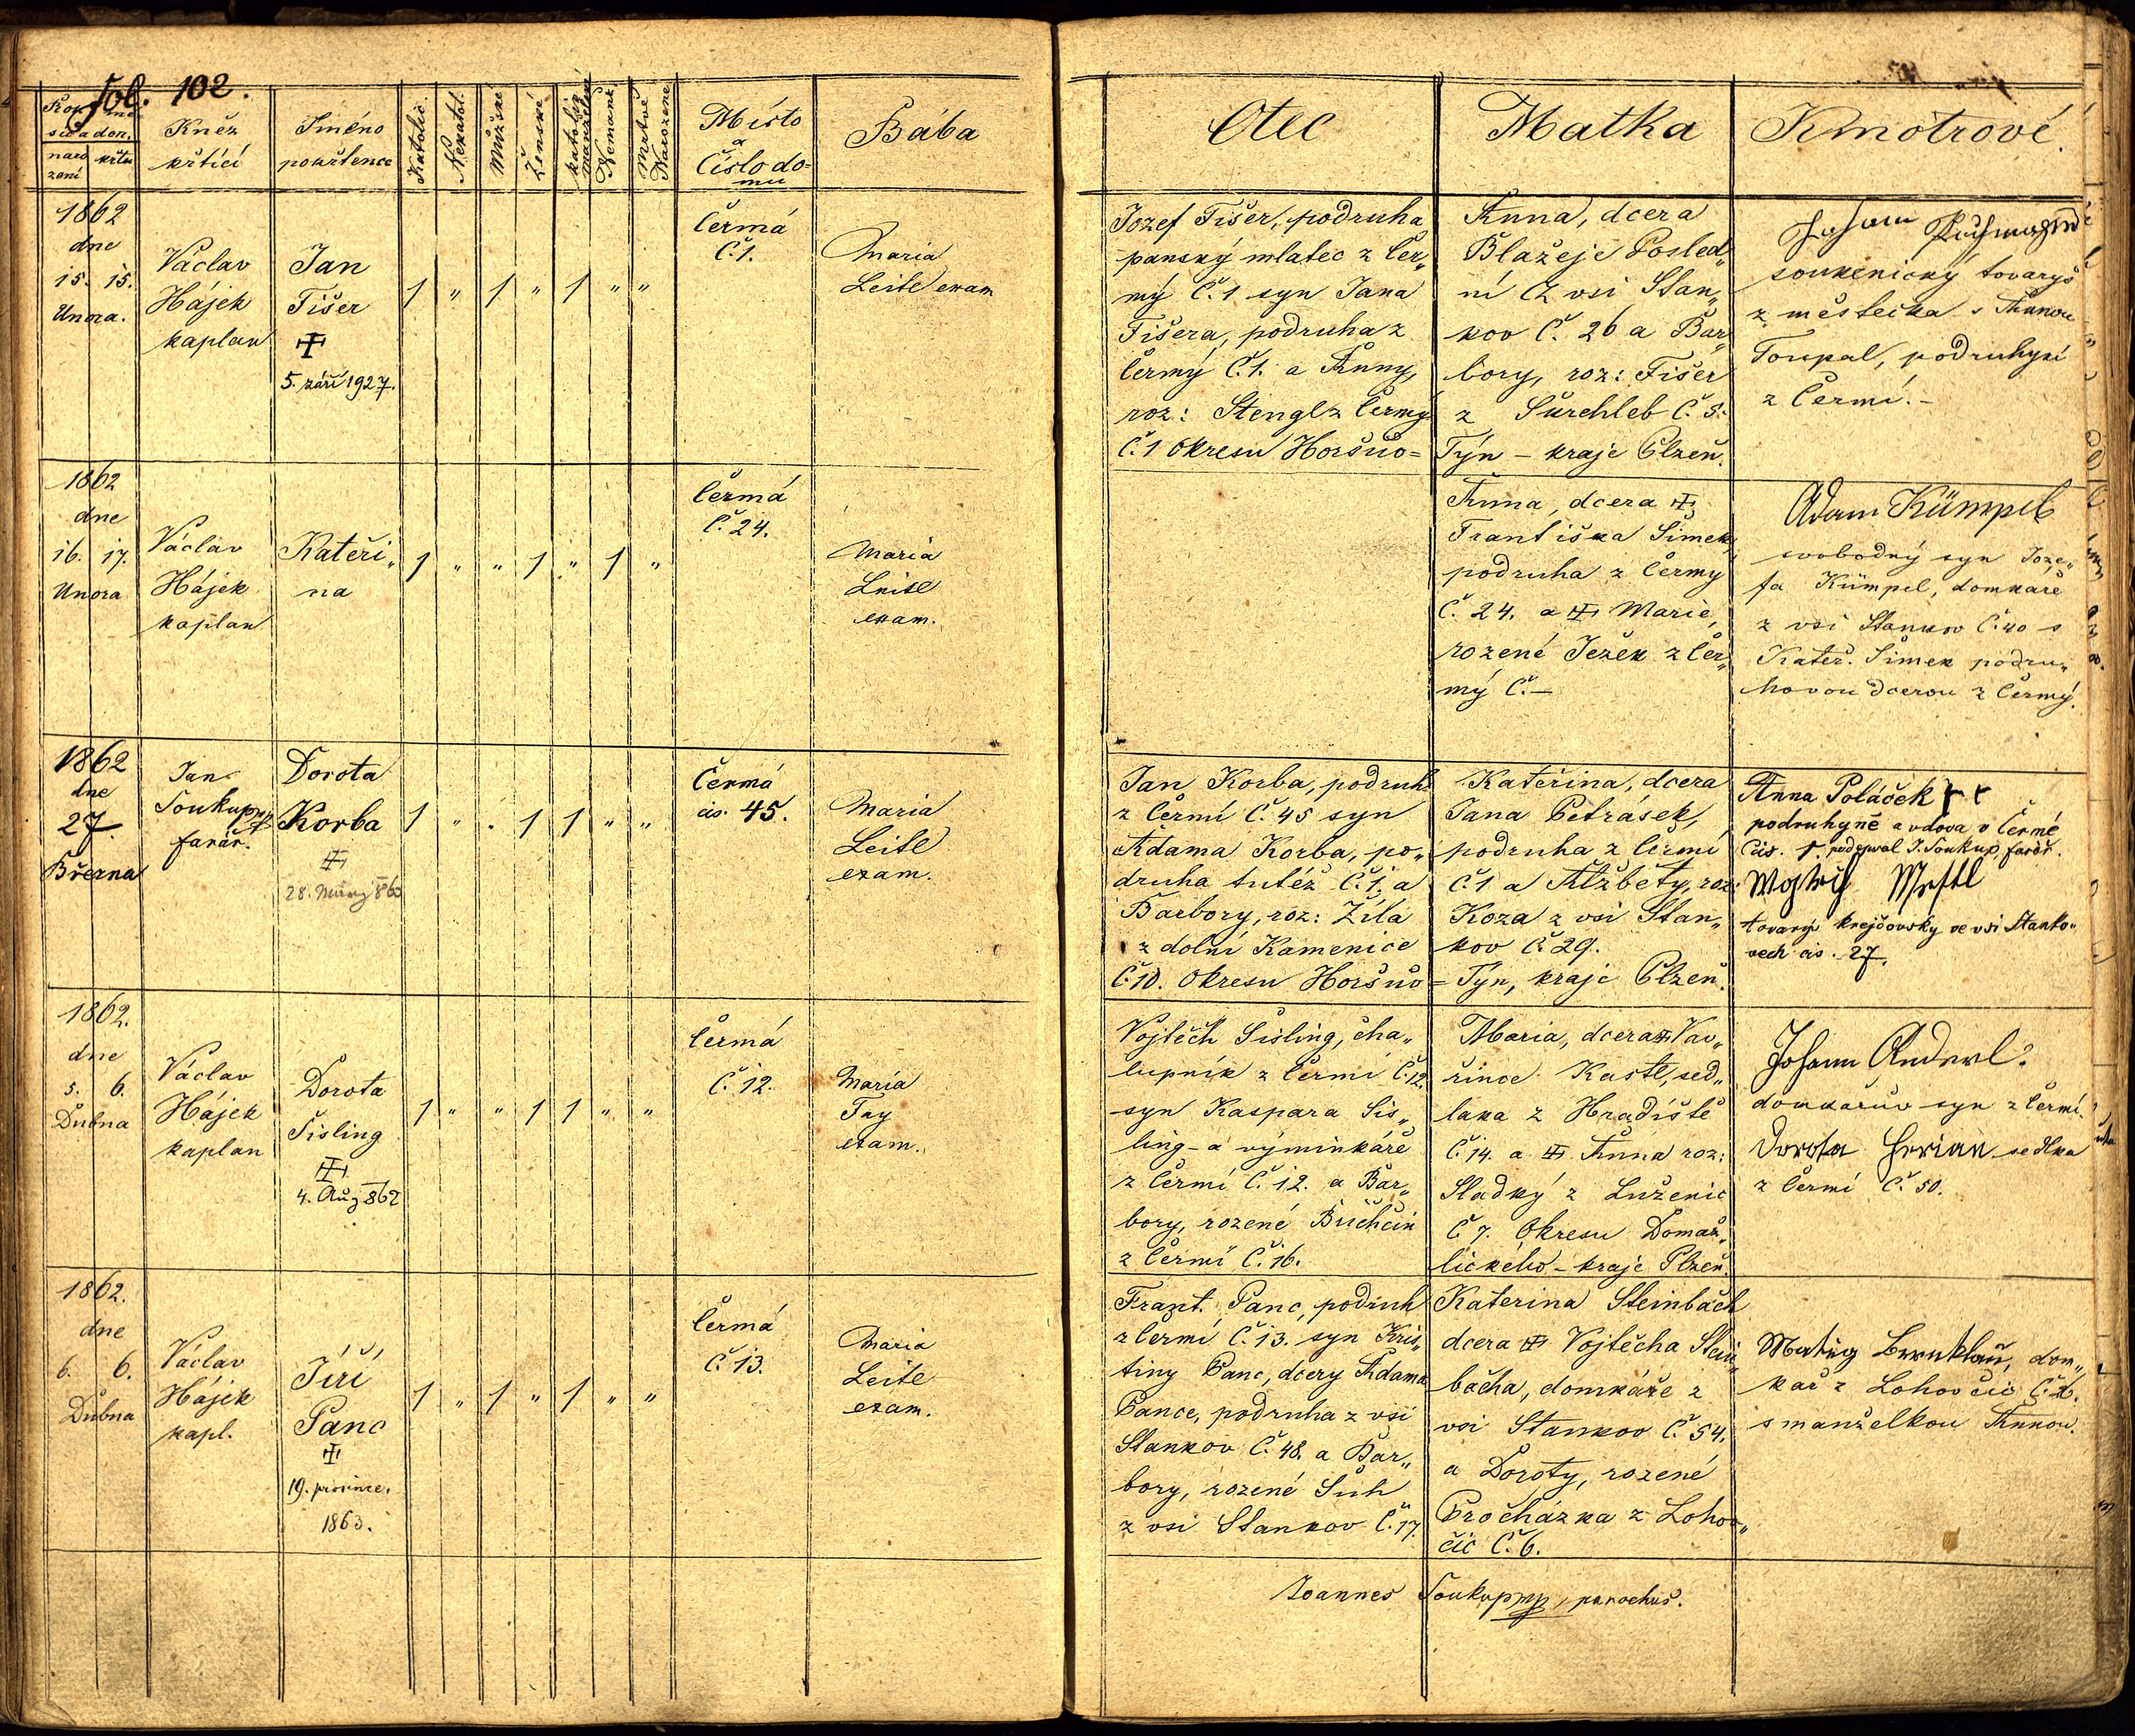 fol. 102.
narození
křtu
Kněz
křtící
Jméno
pokřtence
Katolic.
Nekatol.
Mužské
Ženské
Mrtvě
Narozené
Místo
a
Číslo do=
mu
Bába
Otec
Matka
Kmotrové.
1862
dne
15. 15.
Února.
Václav
Hájek
kaplan
Jan
Fišer
5. září 1927.
1 „ 1 „ 1 „ „
Čermá
Č. 1.
Maria
Leitl exam
Jozef Fišer, podruha
panský mlatec z Čer„
mý Č. 1 syn Jana
Fišera, podruha z
Čermý Č. 1. a Anny,
roz: Stengl z Čermý
Č. 1 Okresu Horšuo=
Anna, dcera
Blažeje Posled„
ní z vsi Stan„
kov Č. 26 a Bar„
bory, roz: Fišer
z Surehleb Č. 5.
Týn – kraje Plzeň.
Johann
soukenický tovaryš
z městečka s Annou
Toupal, podruhyní
z Čermí. –
1862
dne
16. 17.
Února
Václav
Hájek
kaplan
Kateři„
na
1 „ „ 1 „ 1 „
Čermá
Č. 24.
Maria
Leitl
exam.
Anna, dcera
Františka Šimek,
podruha z Čermy
Č. 24. a Marie,
rozené Ježek z Čer„
mý Č. –
Adam Kümpel
svobodný syn Joze„
fa Kümpel, domkaře
z vsi Stankov Č. 40 s
Kateř. Šimek podru„
hovou dcerou z Čermý.
1862
dne
27.
Března
Jan
Soukup mp
farář.
Dorota
Korba
28. März 863
1 „ „ 1 1 „ „
Čermá
čis. 45.
Maria
Leitl
exam.
Jan Korba, podruh
z Čermí Č. 45 syn
Adama Korba, po„
druha tutéž Č. 1. a
Barbory, roz: Žíla
z dolní Kamenice
Č. 10. Okresu Horšuo
Kateřina, dcera
Jana Petrásek,
podruha z Čermí
Č. 1 a Alžběty, roz:
Koza z vsi Stan„
kov Č. 29.
= Týn, kraje Plzeň.
Anna Poláček
podruhyně a vdova v Čermé
čis. 1. podepsal J. Soukup, farář.
tovaryš krejčovsky ve vsi Stanko„
vech čis. 27.
1862.
dne
5. 6.
Dubna
Václav
Hájek
kaplan
Dorota
Šisling
4. Aug 862
1 „ „ 1 1 „ „
Čermá
Č. 12.
Maria
Fay
exam.
Vojtěch Šisling, cha„
lupník z Čermí Č. 12.
syn Kaspara Sis„
ling – a výminkáře
z Čermí Č. 12. a Bar„
bory, rozené Buchčin
z Čermí Č. 16.
Maria, dcera Vav„
řince Kastl, sed„
laka z Hradiště
Č. 14. a Anna roz:
Sladký z Luženic
Č. 7. Okresu Domaž„
lického – kraje Plzeň.
Johann Anderl
domkařův syn z Čermí.
Dorota Herian sedlka
z Čermí Č. 50.
1862.
dne
6. 6.
Dubna
Václav
Hájek
kapl.
Jiří
Panc
19. prosince.
1863.
1 „ 1 „ 1 „ „
Čermá
Č. 13.
Maria
Leitl
exam.
Frant. Panc, podruh
z Čermí Č. 13. syn Kris„
tiny Panc, dcery Adama
Pance, podruha z vsi
Stankov Č. 48. a Bar„
bory, rozené Suh
z vsi Stankov Č. 17.
Katerina Steinbach
dcera Vojtěcha Stein„
bacha, domkáře z
vsi Stankov Č. 54.
a Doroty, rozené
Procházka z Lohov„
čic Č. 6.
Bernklau, dom„
kař z Lohovčic Č. 26.
s manželkou Annou.
Joannes Soukup mp, parochus.